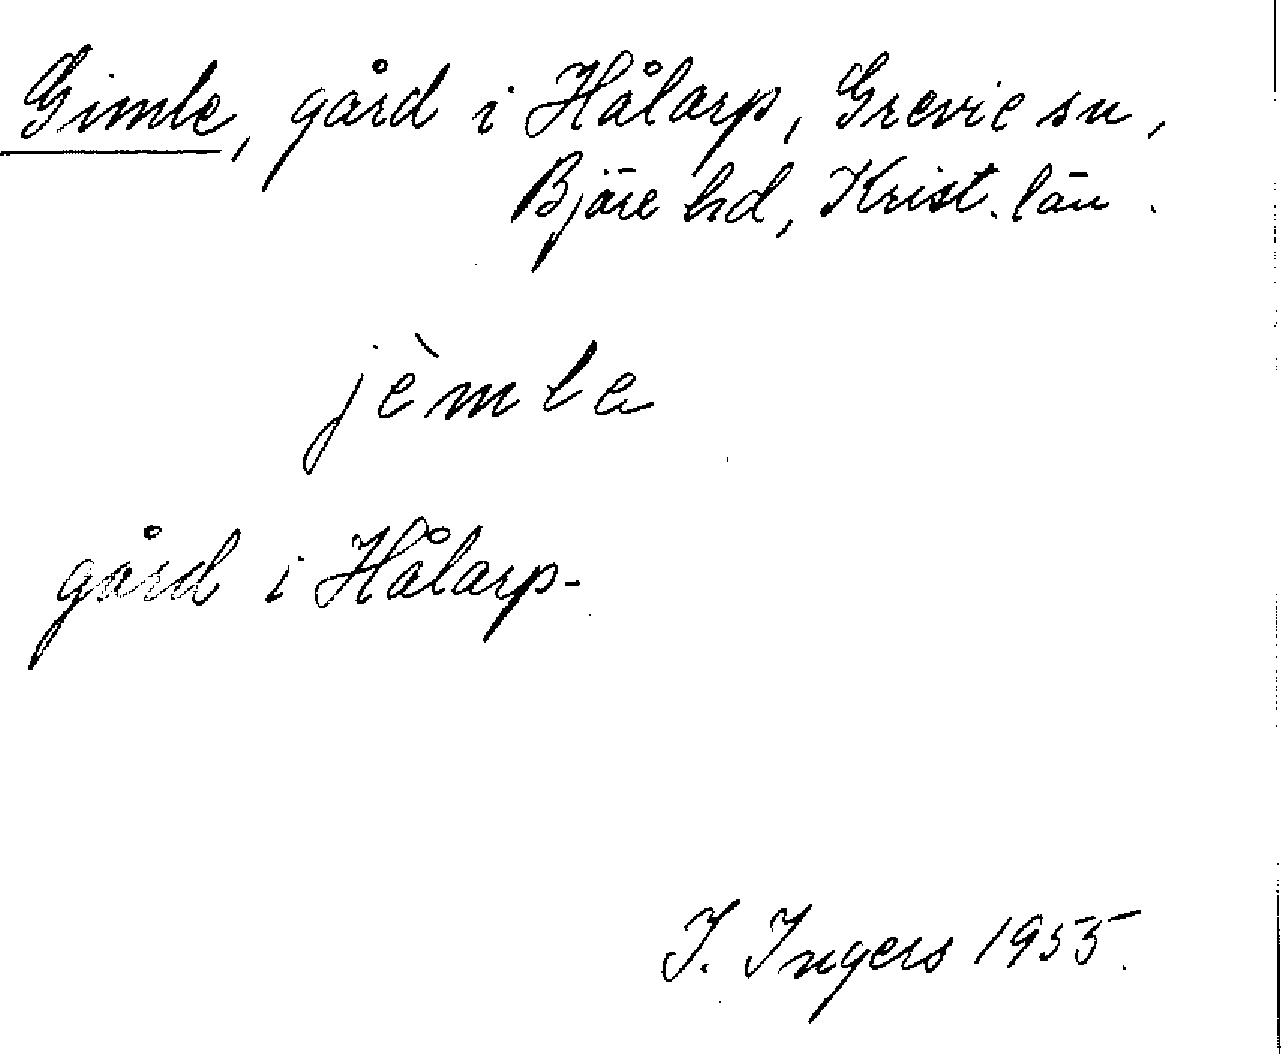 Gimle, gård i Hålarp, Grevie sn,
Bjäre hd, Krist. län.
jèmle
gård i Hålarp.
I. Ingers 1955.